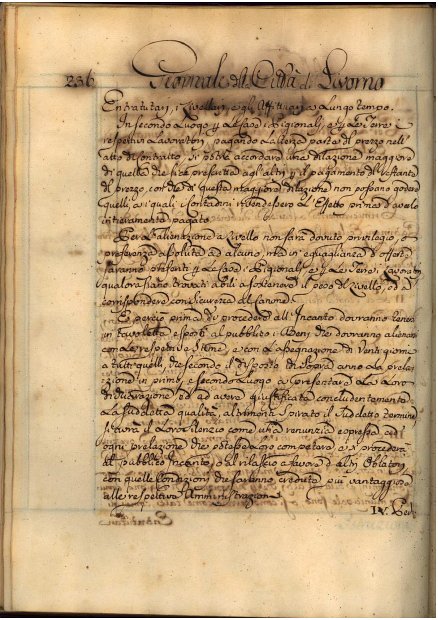 236 Giornale della Città di Livorno
Entratutari, i Livellari, e gli Affittuari a Lungo tempo.
In secondo Luogo per le Case i Pigionali, e per le Terre i
respettivi Lavoratori, pagando la terza parte di prezzo nell'
atto di contratto, si potrà accordare una dilazione maggiore
di quella che sarà prescritta agli altri per il pagamento del restante
di prezzo, con che di questa maggiore dilazione non possano godere
quelli, ai quali i Contadini rivendessero l'Effetto prima d'averlo
intieramente pagato.
Per l'alienazione a Livello non sarà dovuto privilegio, o
preferenza assoluta ad alcuno, ma in eguaglianza d'offerte
saranno preferiti per le Case i Pigionali e per le Terre i Lavoratori
qualora siano trovati abili a sostenere il peso del Livello, ed a
corrispondere con sicurezza del Canone.
E perciò prima di procedere all'Incanto dovranno tenere
in tavoletta esposti al pubblico i Beni, che dovranno alienarsi
con le respettive Stime, e con l'assegnazione di Venti giorni
a tutti quelli, che secondo il disposto di sopra anno la prela-
zione in primo, e secondo Luogo a presentare la Loro
dichiarazione ed ad avere giustificato concludentemente
la suddetta qualità, altrimenti spirato il suddetto termine
si avrà il Loro silenzio come una renunzia espressa ad
ogni prelazione che potesse loro competere, e si procederà
al pubblico Incanto, o al rilascio a favore d'altri Oblatori
con quelle Condizioni che saranno credute più vantaggiose
alle respettive Amministrazioni
IV. Per